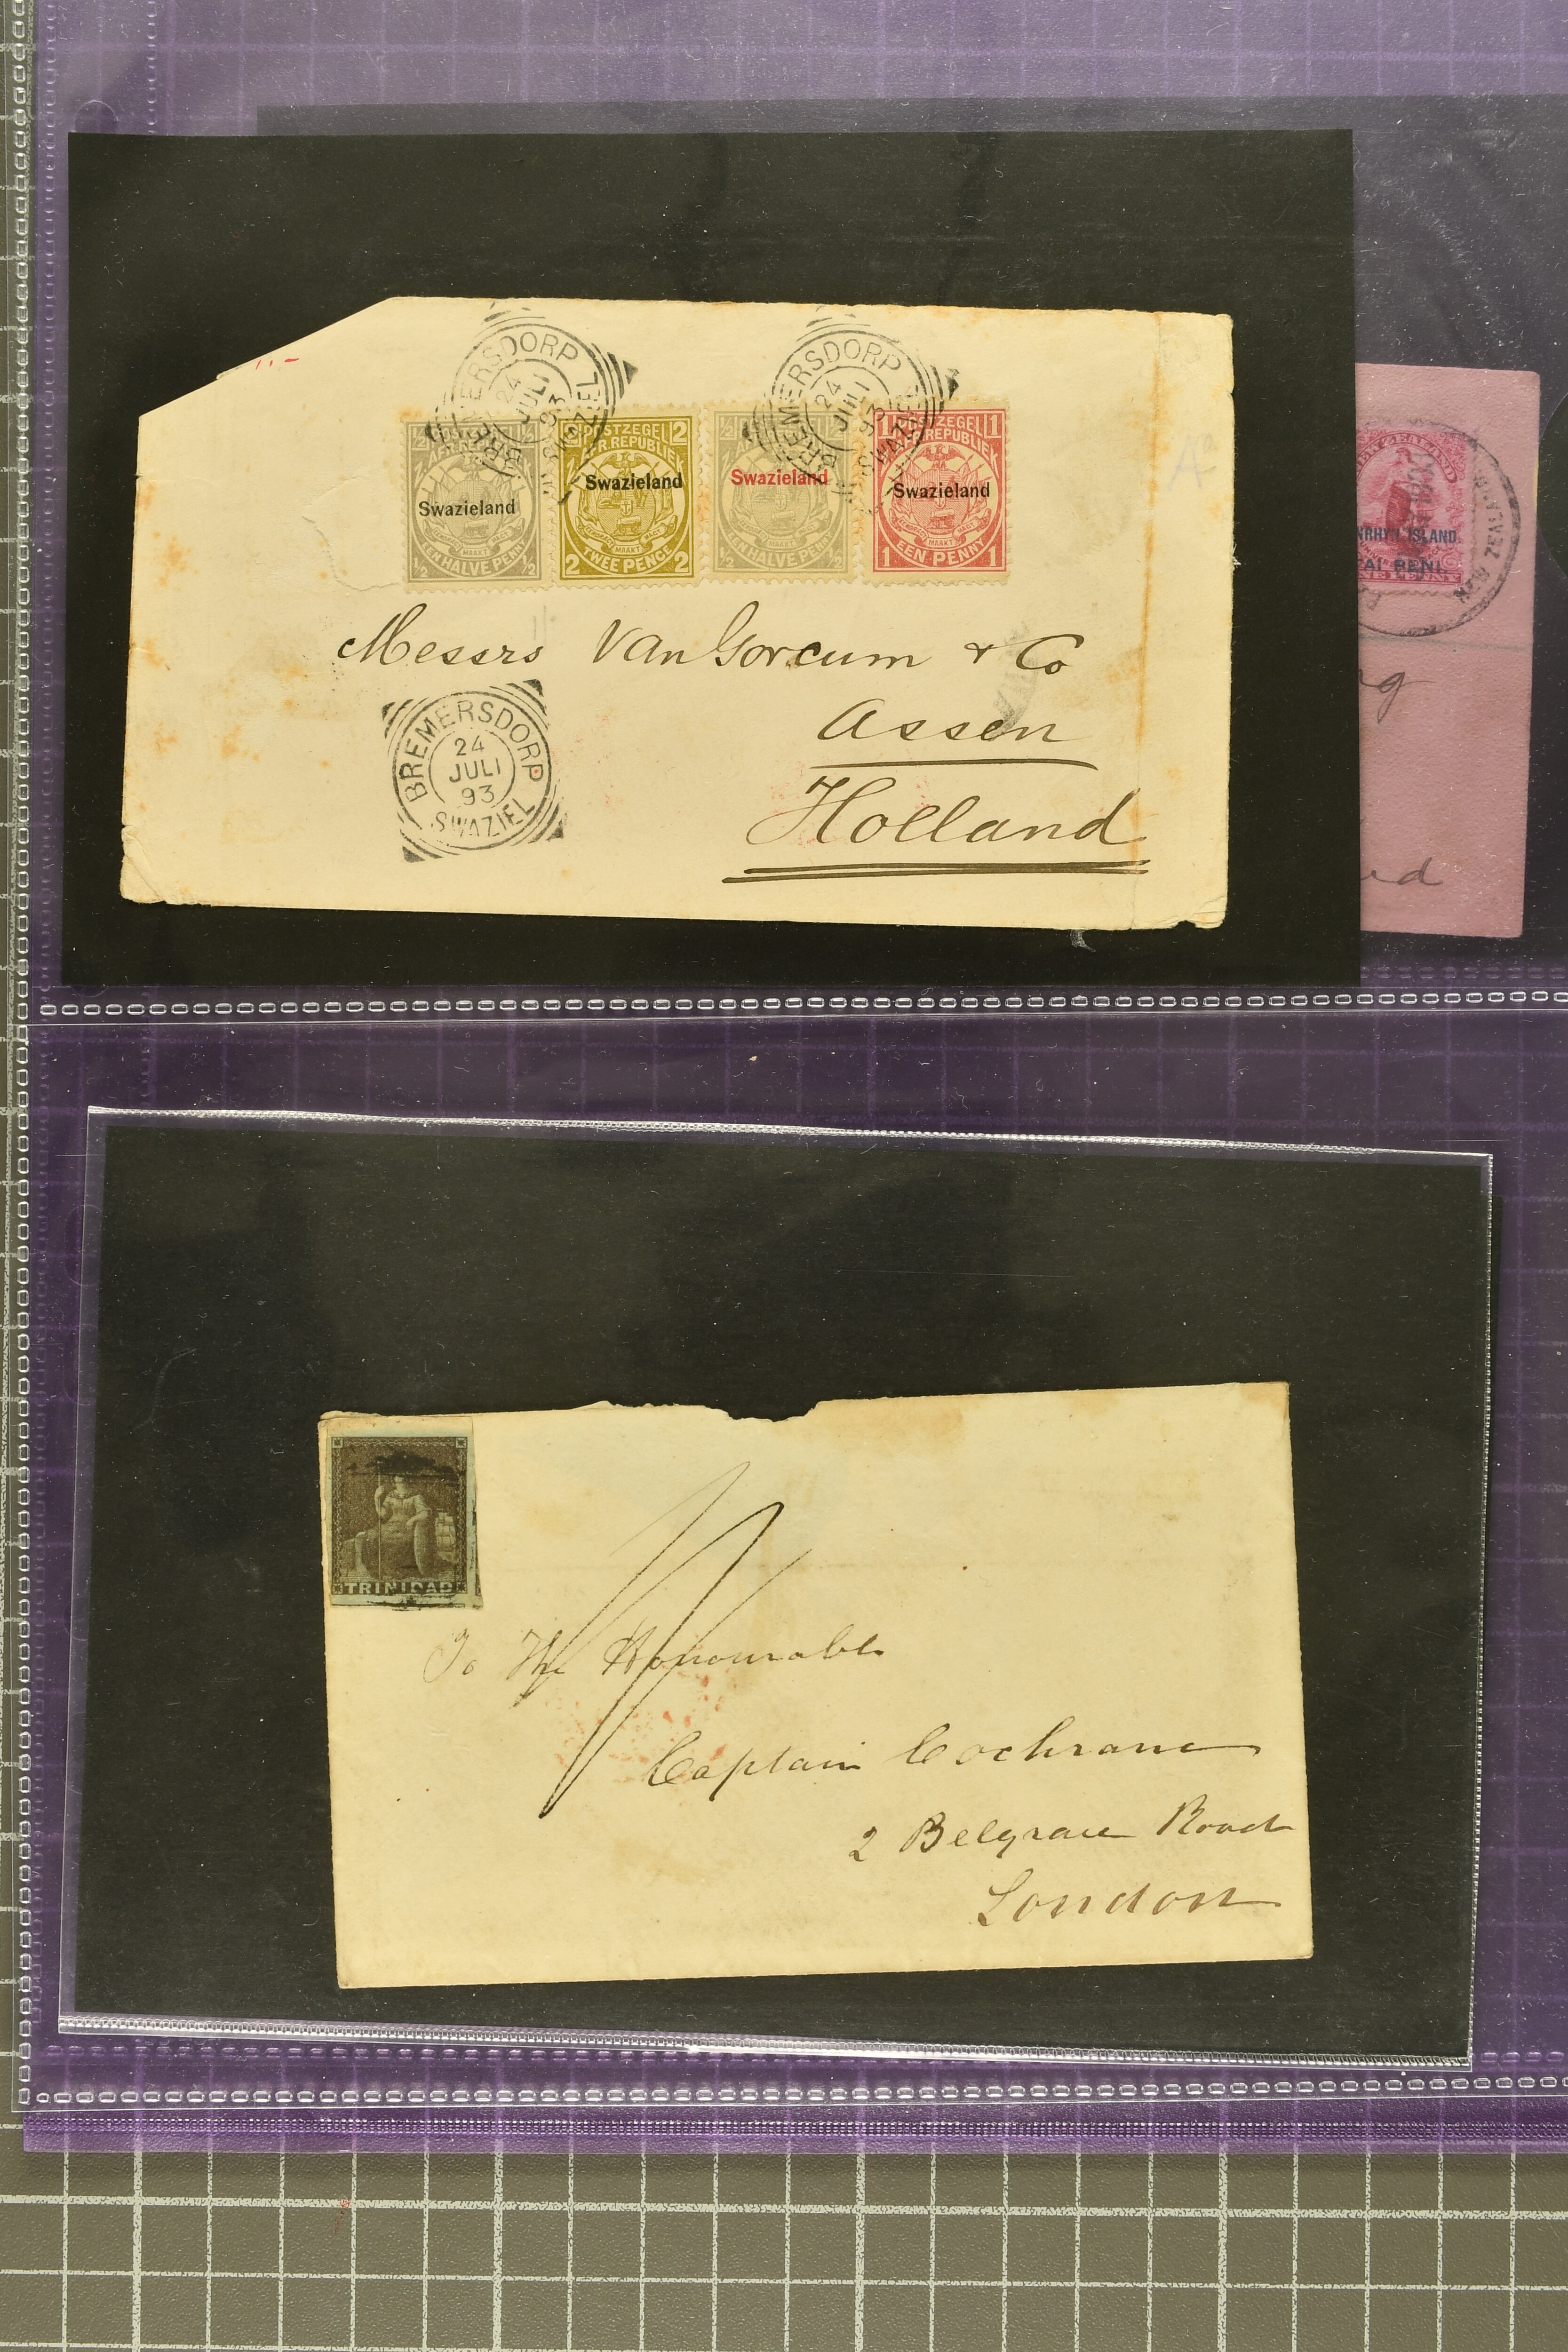 BREMERSDORP
24
JULI
93
SWAZIEL
BREMERSDORP
24
JULI
93
SWAZIEL
½ ½
EEN HALVE PENNY
½ ½
Swazieland
POSTZEGEL 2
AFR. REPUBLIEK
Swazieland
EENDRAGT MAAKT MAGT
2 TWEE PENCE 2
½
Swazieland
MAAKT
EEN HALVE PENNY
½ ½
1 POSTZEGEL 1
REPUBLIEK
Swazieland
EENDRAGT MAAKT MAGT
1 EEN PENNY 1
Messrs Van Gorcum & Co
Assen
Holland
BREMERSDORP
24
JULI
93
SWAZIEL
NRHYN ISLAND.
TAI PENI.
ONE PENNY
TRINIDAD
To The Honourable
Captain Cochrane
2 Belgrave Road
London